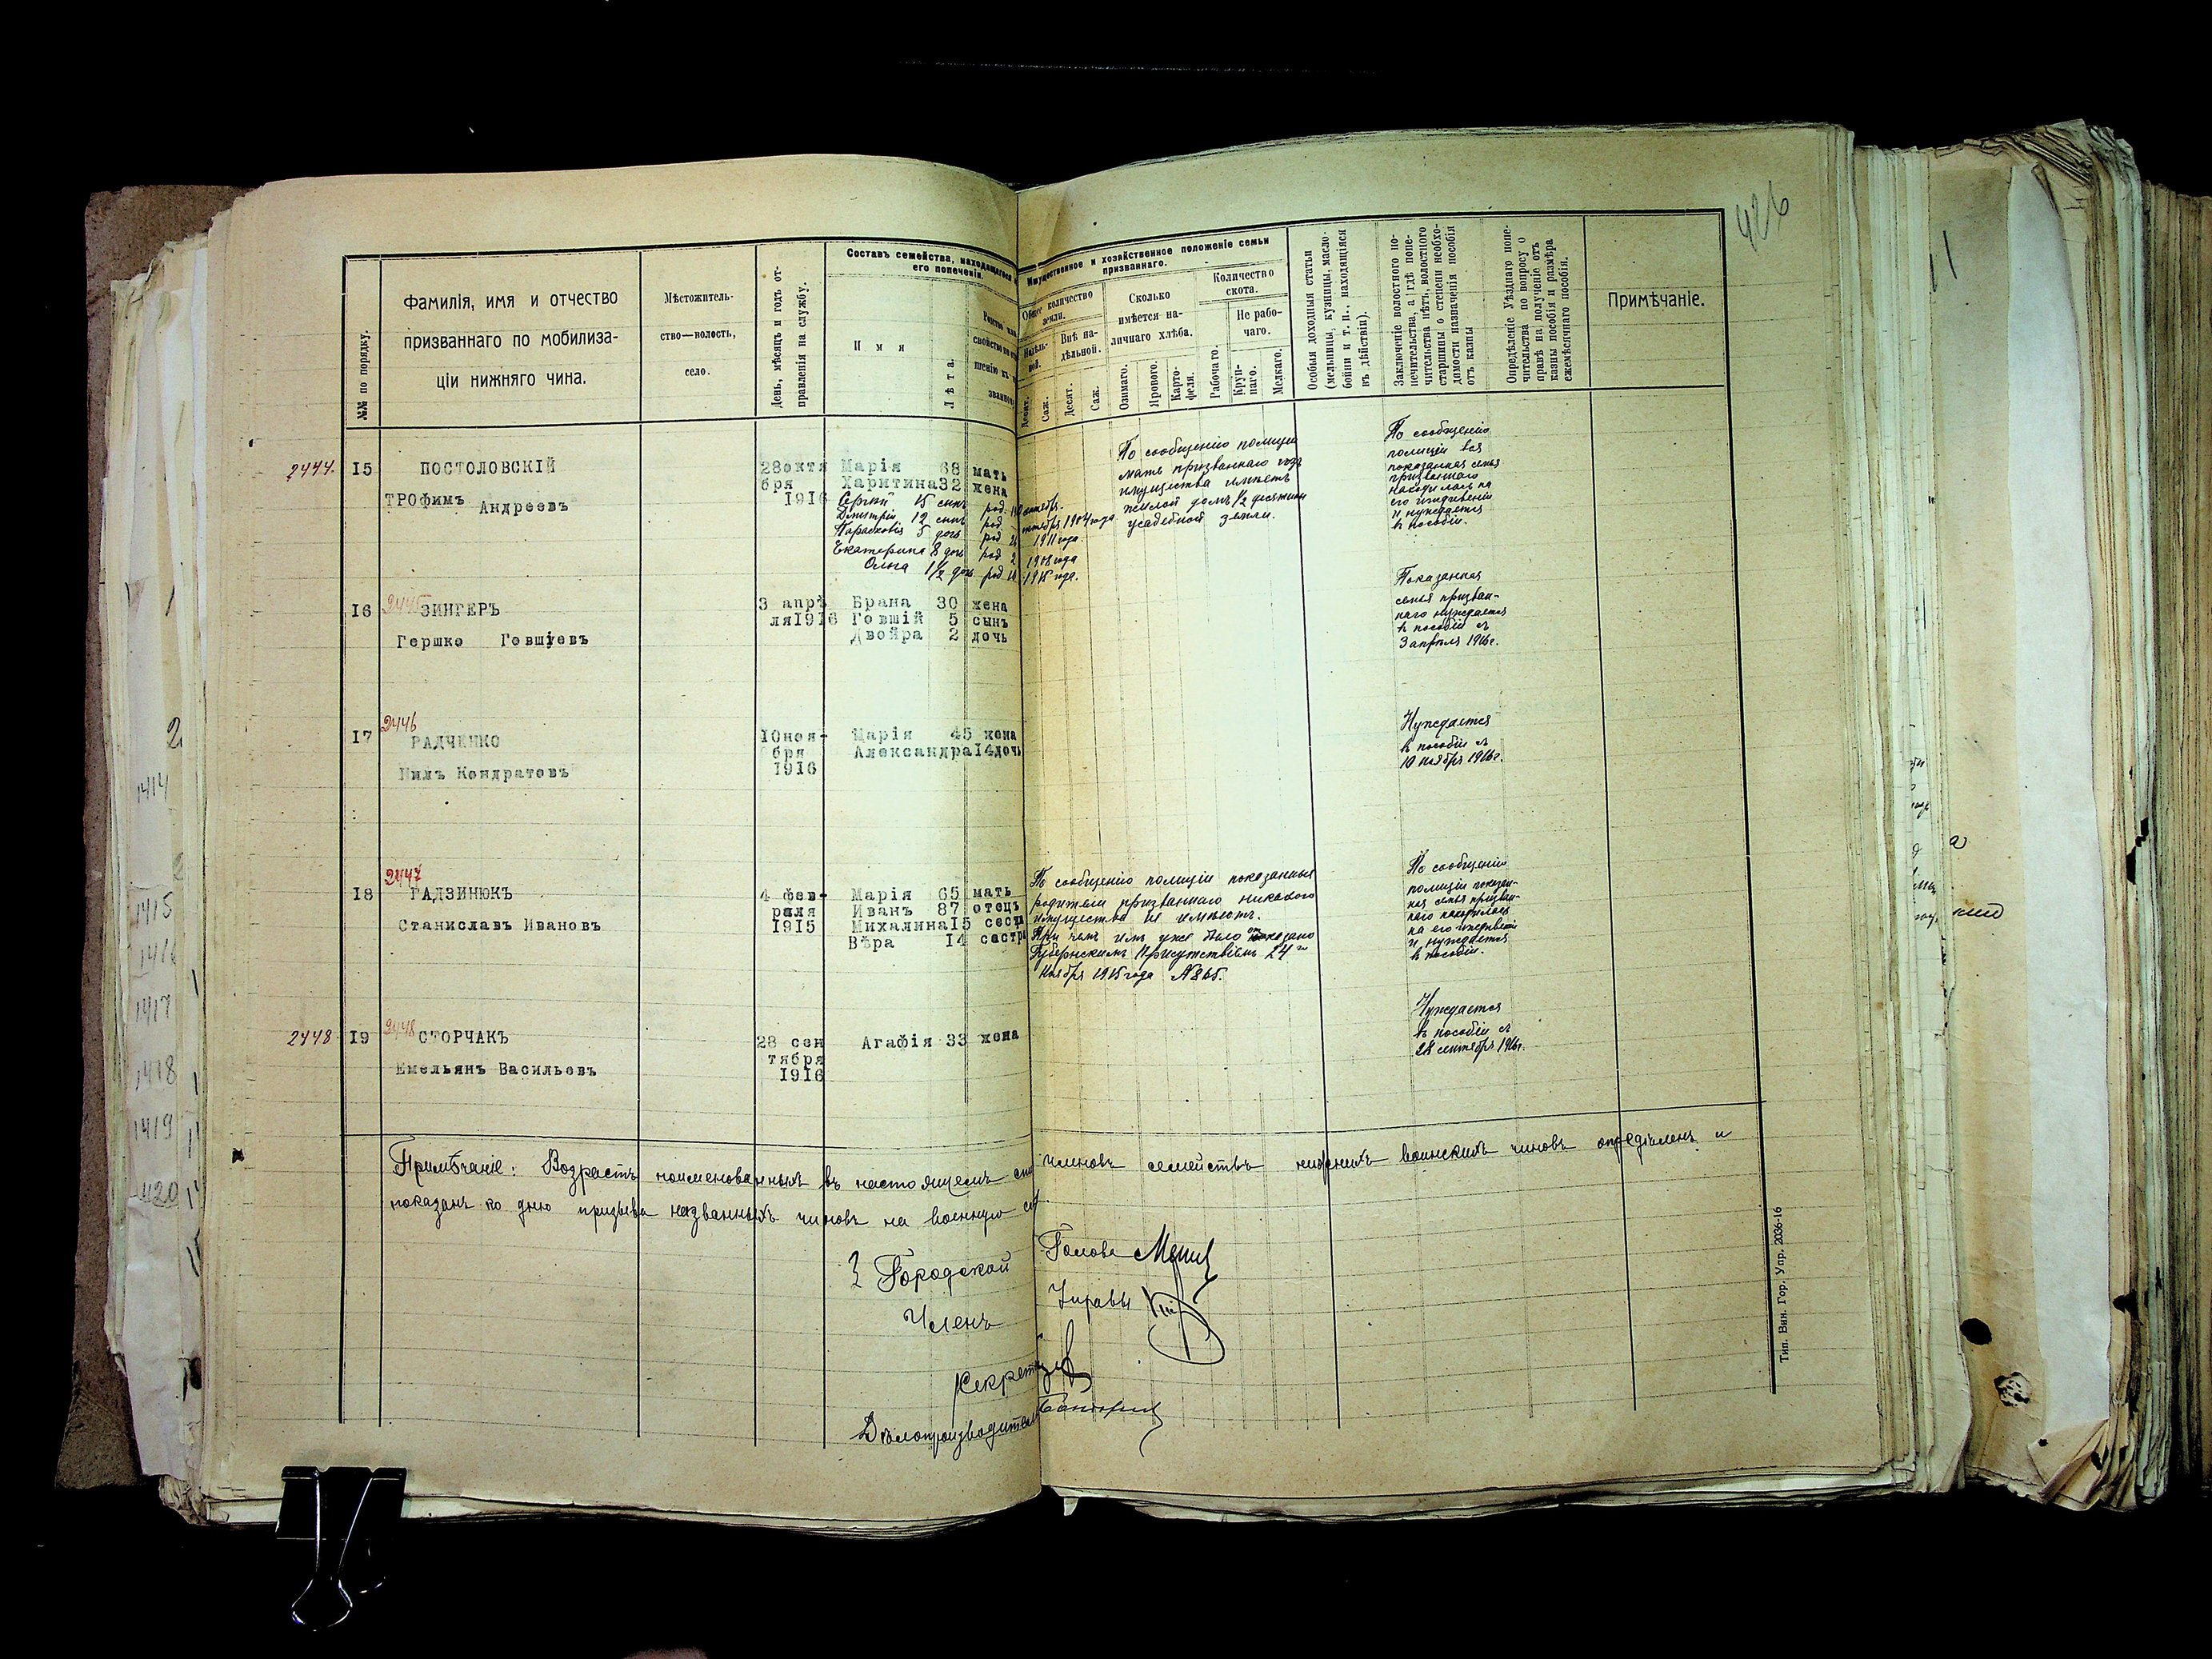 426
№№ по порядку.
Фамилія, имя и отчество
призваннаго по мобилиза-
ціи нижняго чина.
Мѣстожитель-
ство—волость,
село.
День, мѣсяцъ и годъ от-
правленія на службу.
Составъ семейства, находящагося
его попеченіи.
И м я
Лѣта.
Родство или
свойство по
шенію къ
званному
Имущественное и хозяйственное положеніе семьи
призваннаго.
Общее количество
земли.
Надѣль-
ной.
Внѣ на-
дѣльной.
Десят.
Саж.
Десят.
Саж.
Сколько
имѣется на-
личнаго хлѣба.
Озимаго.
Ярового.
Карто-
феля.
Количество
скота.
Рабочаго.
Не рабо-
чаго.
Круп-
наго.
Мелкаго.
Особыя доходныя статьи
(мельницы, кузницы, масло-
бойни и т. п., находящіяся
въ дѣйствіи).
Заключеніе волостного по-
печительства, а гдѣ попе-
чительства нѣтъ, волостного
старшины о степени необхо-
димости назначенія пособія
отъ казны
Опредѣленіе Уѣзднаго попе-
чительства по вопросу о
правѣ на полученіе отъ
казны пособія и размѣра
ежемѣсячнаго пособія.
Примѣчаніе.
2444.
15
ПОСТОЛОВСКІЙ
ТРОфимъ Андреевъ
28октя
бря
1916
Марія 68 мать
Харитина32 жена
Сергій 15 сынъ род.
Дмитрій 12 сынъ род. октября 1904 года
Парасковія 5 дочь род 1911 года.
Екатерина 8 дочь род 2 1908 года
Ольга 1½ дочь род 1915 года.
По сообщенію полиціи
мать призваннаго
имущества имѣетъ
жилой домъ ½ десятины
усадебной земли.
По сообщенію
полиціи вся
показанная семья
призваннаго
находилась на
его иждивеніи
и нуждается
в пособіи.
16
2445
ЗИНГЕРЪ
Гершко Говшіевъ
3 апрѣ
ля1916
Брана 30 жена
Говшій 5 сынъ
Двойра 2 дочь
Показанная
семья призван-
наго нуждается
въ пособіи съ
3 апрѣля 1916г.
17
2446
РАДЧЕНКО
Нилъ Кондратовъ
10ноя-
бря
1916
Марія 45 жена
Александра14дочь
Нуждается
въ пособіи съ
10 ноября 1916г.
18
2447
ГАДЗИНЮКЪ
Станиславъ Ивановъ
4 фев-
раля
1915
Марія 65 мать
Иванъ 87 отецъ
Михалина15 сестр
Вѣра 14 сестра
По сообщенію полиціи показанные
родители призваннаго никакого
имущества не имѣютъ.
При чемъ имъ уже было отказано
Губернскимъ Присутствіемъ 24го
ноября 1915 года №865.
По сообщенію
полиціи показан-
ная семья призван-
наго находилась
на его иждивеніи
и нуждается
в пособіи.
2448
19
2448
СТОРЧАКЪ
Емельянъ Васильевъ
28 сен
тября
1916
Агафія 33 жена
Нуждается
въ пособіи съ
28 сентября 1916г.
Примѣчаніе: Возрастъ поименованныхъ въ настоящемъ членовъ семействъ нижнихъ воинскихъ чиновъ опредѣленъ и
показанъ ко дню призыва названныхъ чиновъ на военную
Городской Голова
Членъ Управы
Секретарь
Дѣлопроизводитель
Тип. Вин. Гор. Упр. 2036-16
1414
1415
1416
1417
1418
1419
1420